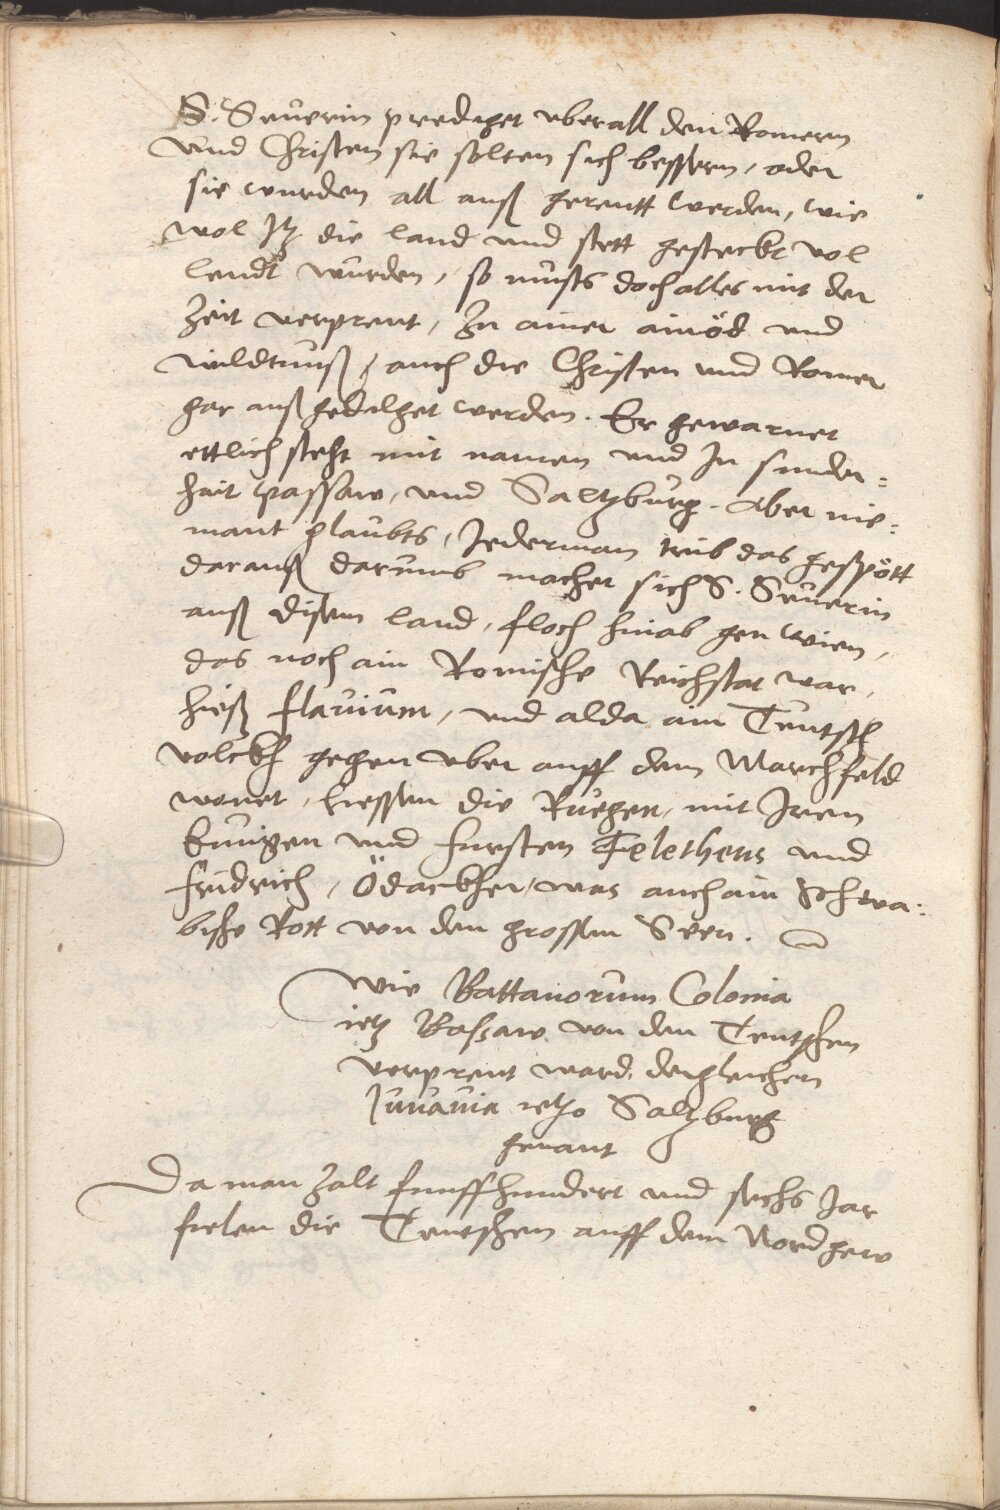 S. Seuerin prediget vberall den Romern
vnd Christen sie solten sich bessern, oder
sie wurden all auß gereutt werden, wie
wol Itz die land vnd stett gesteckt vol
leudt wurden, so musts doch alles mit der
Zeit verprent, In ainer ainöd vnd
wildtnuß, auch die Christen vnd Romer
gar auß gedilget werden. Er gewarnet
ettlich stett mit namen vnd In sunder=
hait Passaw, vnd Saltzburg. Aber nie=
mant glaubts, Jederman trib das gespött
darauß darumb machet sich S. Seuerin
auß disem land, floch hinab gen Wien,
das noch ain Romische Reichstat war,
hieß flauium, vnd alda ain Teutsch
volckh gegen vber auff dem Marchfeld
wonet, hiessen die Ruegen, mit Iren
kunigen vnd fursten Felethens vnd
fridrich, Odackher, was auch ain Schwa=
bische Rott von den grossem Seen.
Wie Battauorum Colonia
ietz Bassaw von den Teutschen
verprent ward, dergleichen
Juuauia ietzo Saltzburg
genant
Da man zalt funffhundert vnd sechs Jar
fielen die Teutschen auff dem Nordgew